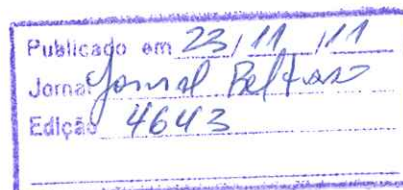 Publicado em 23/11/11
Jornal Jornal Beltrão
Edição 4643